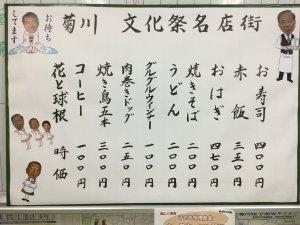 菊川 文化祭名店街
お待ち
してます
お寿司 四〇〇円
赤飯 三五〇円
おはぎ 四七〇円
焼きそば 二〇〇円
うどん 二〇〇円
グルグルウィンナー 一〇〇円
肉巻きドッグ 二五〇円
焼き鳥五本 三〇〇円
コーヒー 一〇〇円
花と球根 時価